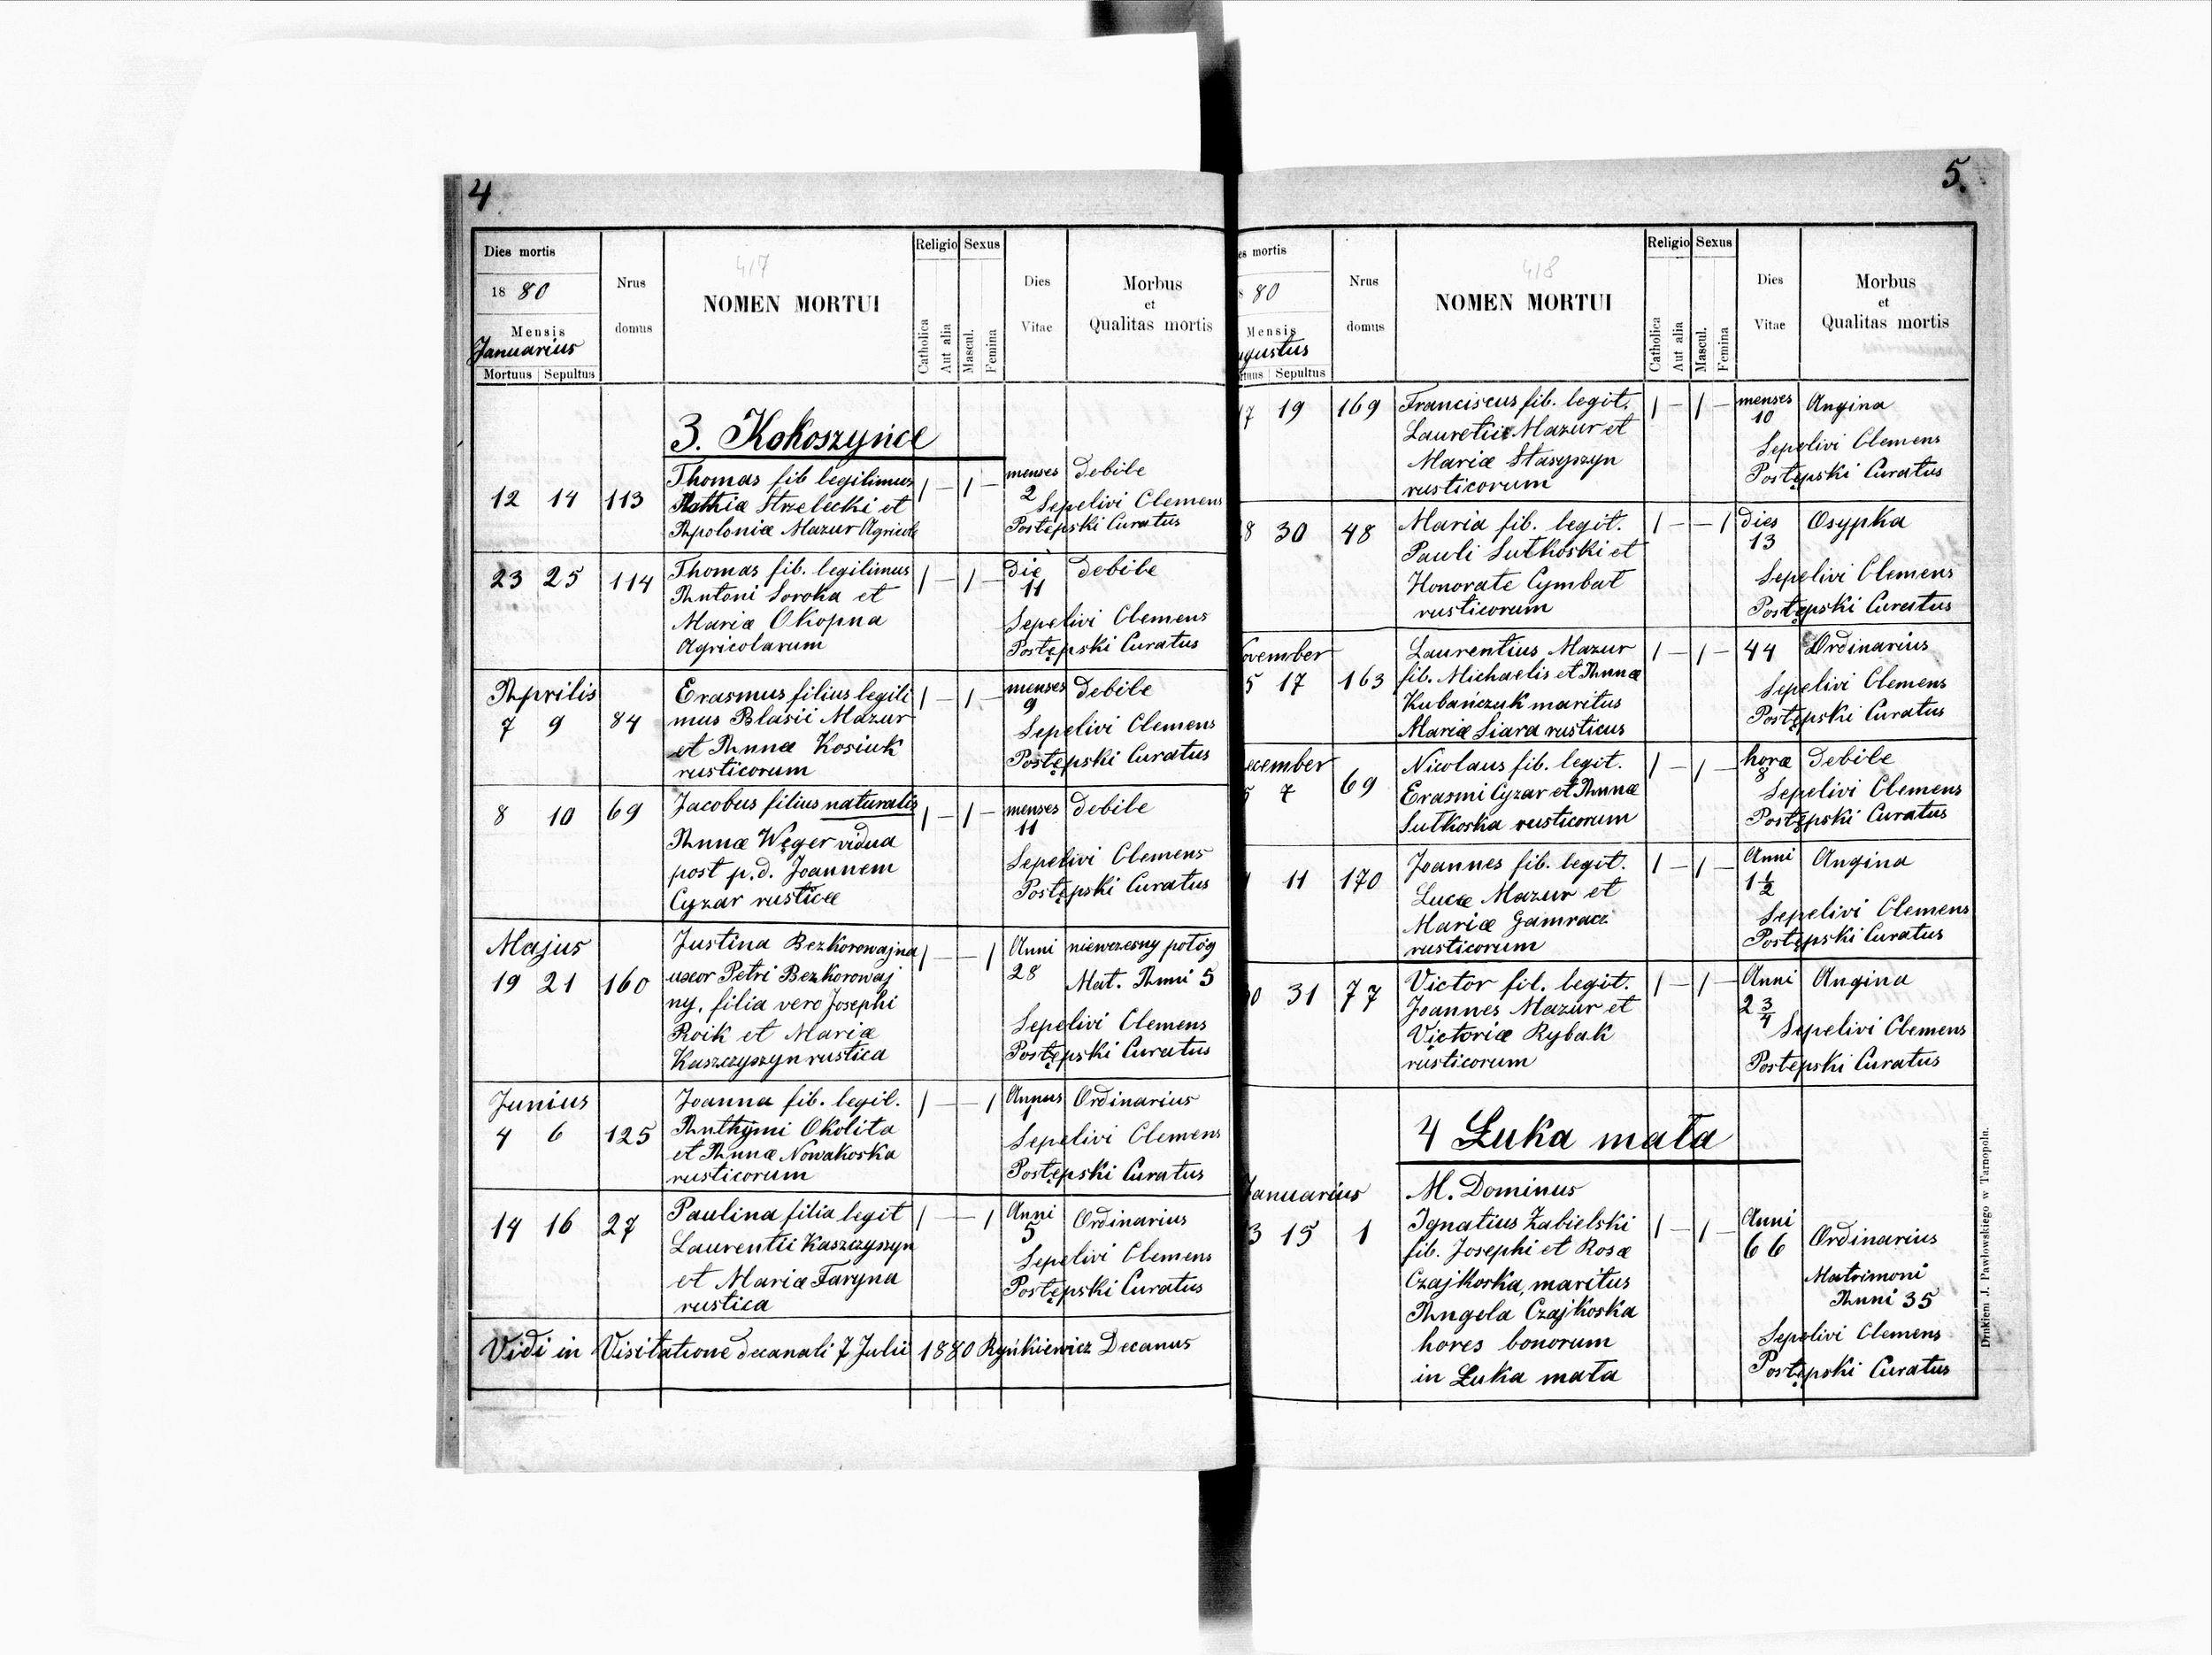 4
Dies mortis
1880
Mensis
Januarius
Mortuus Sepultus
Nrus
domus
417
NOMEN MORTUI
Religio Sexus
Catholica
Aut alia
Mascul.
Femina
Dies
Vitae
Morbus
et
Qualitas mortis
3. Kokoszyńce
12 14 113
Thomas fil legitimus
Mathiæ Strzelecki et
Apoloniæ Mazur Agricole
1 — 1 —
menses
2
debile
Sepelivi Clemens
Postępski Curatus
23 25 114
Thomas fil. legitimus
Antoni Soroka et
Mariæ Okopna
Agricolarum
1 — 1 —
die
11
debile
Sepelivi Clemens
Postępski Curatus
Aprilis
7 9 84
Erasmus filius legiti
mus Blasii Mazur
et Annæ Kosiuk
rusticorum
1 — 1 —
menses
9
debile
Sepelivi Clemens
Postępski Curatus
8 10 69
Jacobus filius naturalis
Annæ Węger vidua
post p.d. Joannem
Cyzar rusticæ
1 — 1 —
menses
11
debile
Sepelivi Clemens
Postępski Curatus
Majus
19 21 160
Justina Bezkorowajna
uxor Petri Bezkorowaj
ny, filia vero Josephi
Roik et Mariæ
Kaszczyszyn rustica
1 — — 1
Anni
28
niewczesny połóg
Mat. Anni 5
Sepelivi Clemens
Postępski Curatus
Junius
4 6 125
Joanna fil. legit.
Anthymi Okolita
et Annæ Nowakoska
rusticorum
1 — — 1
Annus
1
Ordinarius
Sepelivi Clemens
Postępski Curatus
14 16 27
Paulina filia legit
Laurentii Kaszczyszyn
et Mariæ Faryna
rustica
1 — — 1
Anni
5
Ordinarius
Sepelivi Clemens
Postępski Curatus
Vidi in Visitatione decanali 7 Julii 1880 Ryńkiewicz Decanus
5.
es mortis
80
Mensis
ugustus
Sepultus
Nrus
domus
418
NOMEN MORTUI
Religio Sexus
Catholica
Aut alia
Mascul.
Femina
Dies
Vitae
Morbus
et
Qualitas mortis
17 19 169
Franciscus fil. legit.
Lauretii Mazur et
Mariæ Stasyszyn
rusticorum
1 — 1 —
menses
10
Angina
Sepelivi Clemens
Postępski Curatus
8 30 48
Maria fil. legit.
Pauli Sutkoski et
Honorate Cymbat
rusticorum
1 — — 1
dies
13
Osypka
Sepelivi Clemens
Postępski Curatus
ovember
5 17 163
Laurentius Mazur
fil. Michaelis et Annæ
Kubańczuk maritus
Mariæ Siara rusticus
1 — 1 —
44
Ordinarius
Sepelivi Clemens
Postępski Curatus
ecember
5 7 69
Nicolaus fil. legit.
Erasmi Cyzar et Annæ
Sutkoska rusticorum
1 — 1 —
horæ
8
Debile
Sepelivi Clemens
Postępski Curatus
11 170
Joannes fil. legit.
Lucæ Mazur et
Mariæ Gamracz
rusticorum
1 — 1 —
Anni
1 1/2
Angina
Sepelivi Clemens
Postępski Curatus
0 31 77
Victor fil. legit.
Joannes Mazur et
Victoriæ Rybak
rusticorum
1 — 1 —
Anni
2 3/4
Angina
Sepelivi Clemens
Postępski Curatus
4 Łuka mała
Januarius
3 15 1
M. Dominus
Ignatius Zabielski
fil. Josephi et Rosæ
Czajkoska, maritus
Angela Czajkoska
hores bonorum
in Łuka mała
1 — 1 —
Anni
66
Ordinarius
Matrimoni
Anni 35
Sepelivi Clemens
Postępski Curatus
Drukiem J. Pawłowskiego w Tarnopolu.